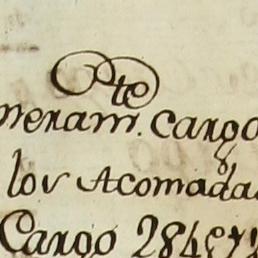 Pte
meram. cargo
los Acomoda
Cargo 284